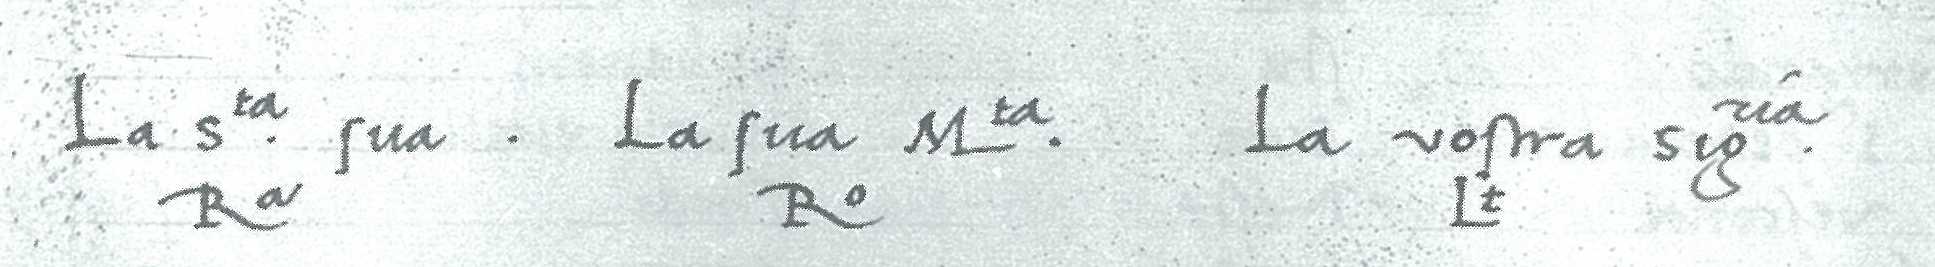 La s.ᵗᵃ ſua . La ſua M.ᵗᵃ La voſtra sig.ʳⁱᵃ
Rᵃ Rᵒ Lᵗ